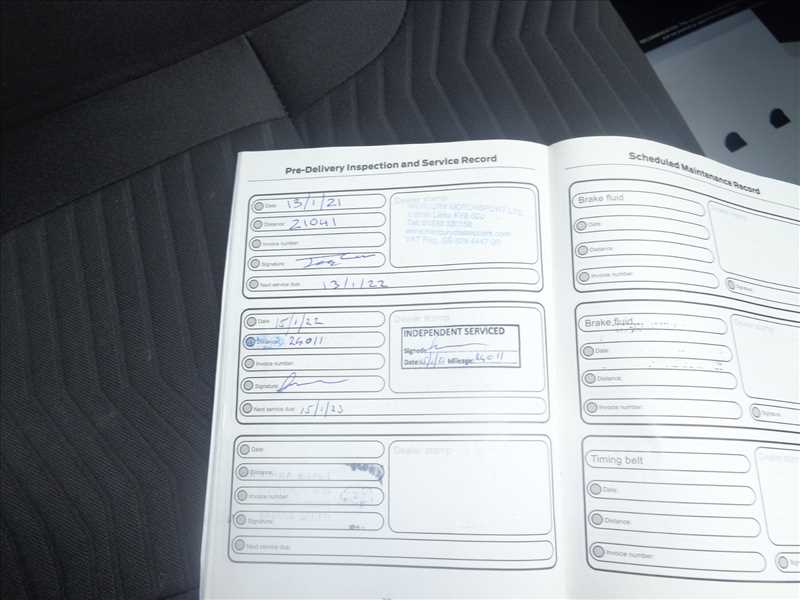 Pre-Delivery Inspection and Service Record
Date: 13/1/21
Distance: 21041
Invoice number:
Signature:
Next service due: 13/1/22
Dealer stamp
Date: 15/1/22
Distance: 24011
Invoice number:
Signature:
Next service due: 15/1/23
Dealer stamp
INDEPENDENT SERVICED
Signed:
Date: Mileage: 24011
Date:
Distance:
Invoice number:
Signature:
Next service due:
Dealer stamp
Scheduled Maintenance Record
Brake fluid
Date:
Distance:
Invoice number:
Signature:
Brake fluid
Date:
Distance:
Invoice number:
Signature:
Timing belt
Date:
Distance:
Invoice number: